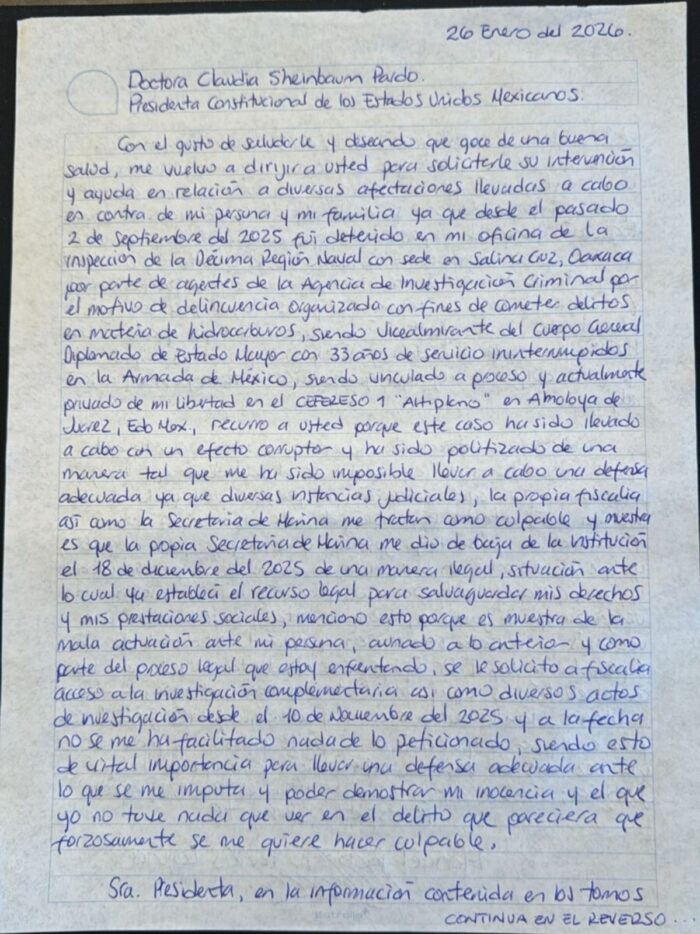 26 Enero del 2026.
Doctora Claudia Sheinbaum Pardo.
Presidenta Constitucional de los Estados Unidos Mexicanos.
Con el gusto de saludarle y deseando que goce de una buena
salud, me vuelvo a dirijir a usted para solicitarle su intervención
y ayuda en relación a diversas afectaciones llevadas a cabo
en contra de mi persona y mi familia ya que desde el pasado
2 de Septiembre del 2025 fui deterido en mi oficina de la
inspección de la Décima Región Naval con sede en Salina Cruz, Oaxaca
por parte de agentes de la Agencia de Investigación Criminal por
el motivo de delincuencia organizada con fines de cometer delitos
en materia de hidrocarburos, siendo Vicealmirante del Cuerpo General
Diplomado de Estado Mayor con 33 años de servicio ininterrumpidos
en la Armada de México, siendo vinculado a proceso y actualmente
privado de mi libertad en el CEFERESO 1 "Altiplano" en Almoloya de
Juárez, Edo Mex., recurro a usted porque este caso ha sido llevado
a cabo con un efecto corruptor y ha sido politizado de una
manera tal que me ha sido imposible llevar a cabo una defensa
adecuada ya que diversas instancias judiciales, la propia fiscalía
así como la Secretaria de Marina me tratan como culpable y muestra
es que la popia Secretaria de Marina me dio de baja de la institución
el 18 de diciembre del 2025 de una manera ilegal, situación ante
lo cual ya establecí el recurso legal para salvaguardar mis derechos
y mis prestaciones sociales, menciono esto porque es muestra de la
mala actuación ante mi persona, aunado a lo anterior y como
parte del proceso legal que estoy enfrentando, se le solicito a fiscalía
acceso a la investigación complementaria asi como diversos actos
de investigación desde el 10 de Noviembre del 2025 y a la fecha
no se me ha facilitado nada de lo peticionado, siendo esto
de vital importancia para llevar una defensa adecuada ante
lo que se me imputa y poder demostrar mi inocencia y el que
yo no tuve nada que ver en el delito que pareciera que
forzosamente se me quiere hacer culpable.
Sra. Presidenta, en la información contenida en los tomos
CONTINUA EN EL REVERSO...